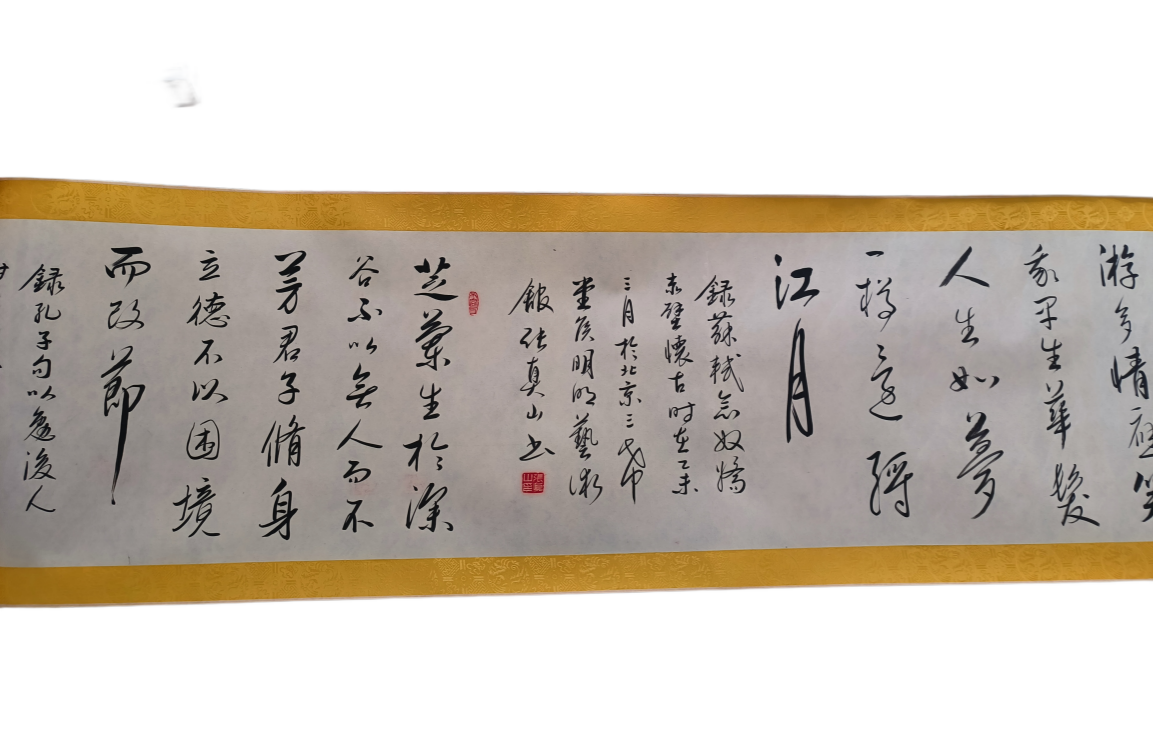 游多情應笑
我早生華髮
人生如夢
一樽還酹
江月
錄蘇軾念奴嬌
赤壁懷古时在乙未
三月於北京三
侯明明藝術
館张真山书
芝蘭生於深
谷不以無人而不
芳君子脩身
立德不以困境
而改節
錄孔子句以後人